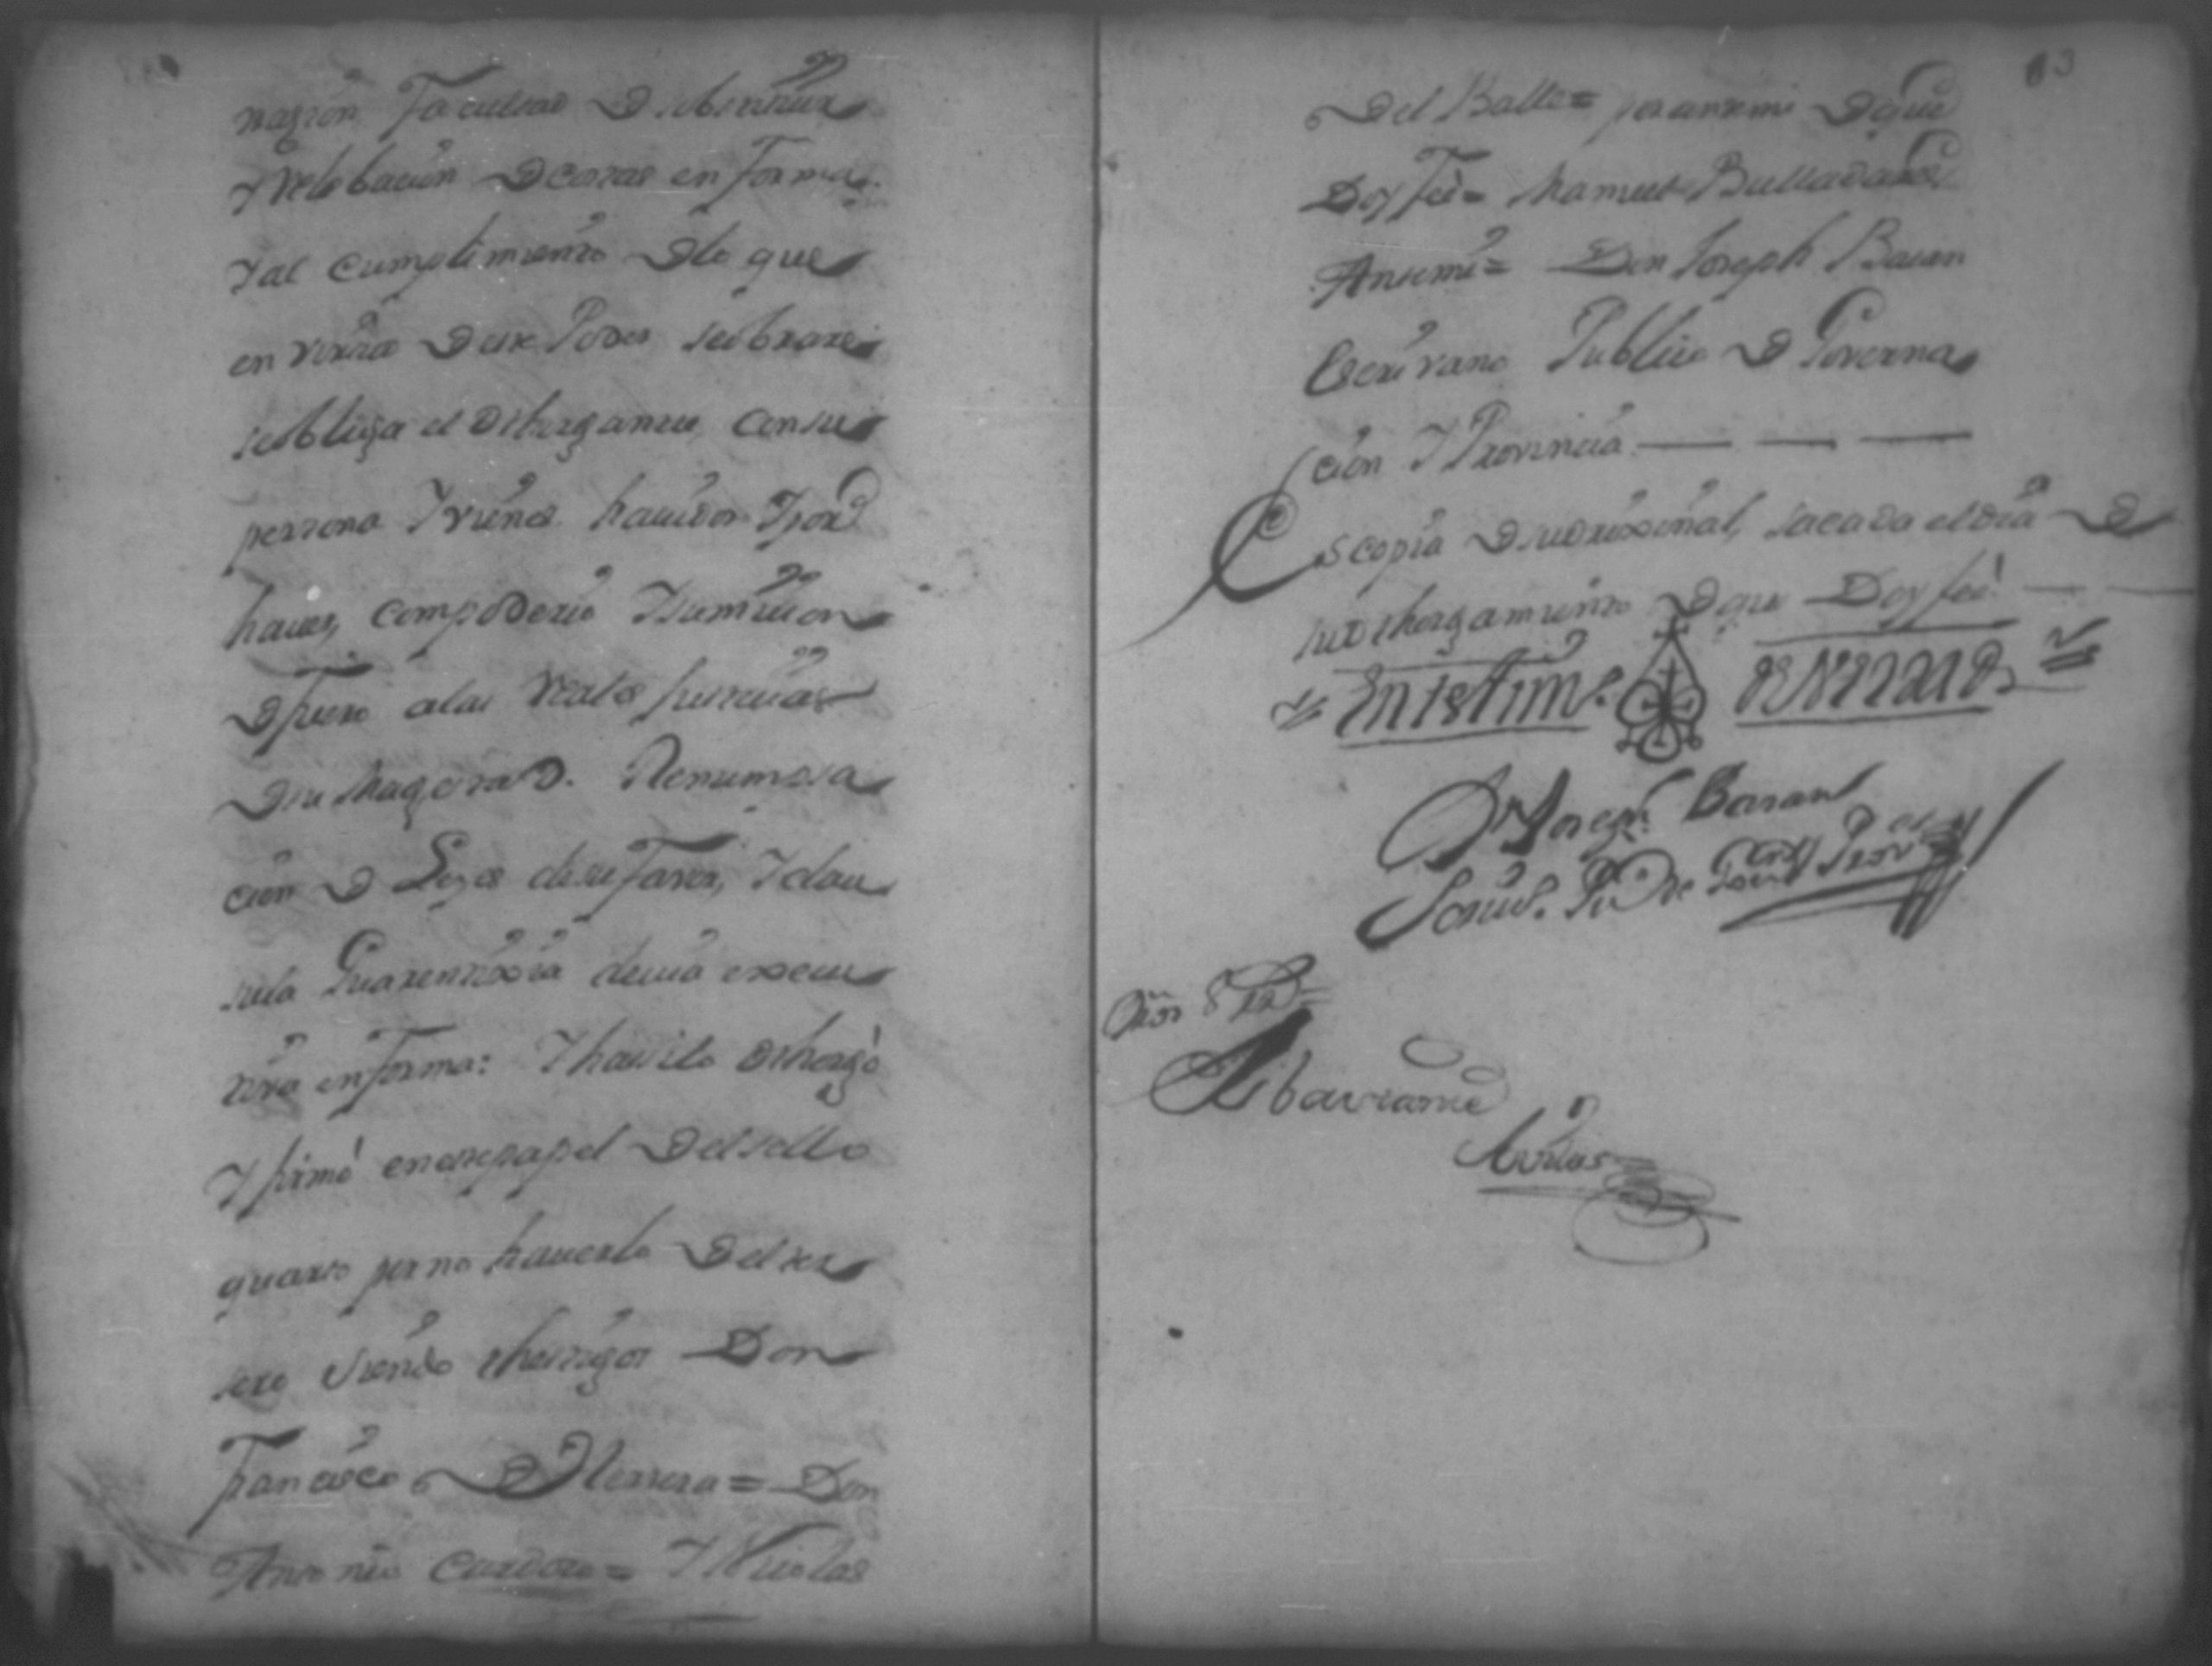 razion facultad D substituir
Y relebacion D costas en forma
Y al cumplimiento D lo que
en virtud D este Poder se obrare
se obliga el Othorgante con su
persona Y vienes havidos Y por
haver, con poderio Y sumicion
D fuero a las Reales Justicias
D su Magestad. Renumssia
cion D Leyes de su favor, Y clau
sula Guarentixia devia execu
tiva en forma: Y haci lo othorgò
Y firmò en este papel Del sello
quarto por no haverlo Del ter
sero siendo thestigos Don
Francisco D Herrera = Don
Antonio Cardoso = Y Nicolas
83
Del Balle = por ante mi D que
Doy Feè = Manuel Bustadaños
Ante mi = Don Joseph Basan
Escrivano Publico D Governa
cion Y Provincia
Es copia D su Orixinal, sacada el dia D
su Othorgamiento D que Doy feè
En testim.o de Verdad
Joseph Basan
Scriv.o Pu.co de Gov.on y Prov.a